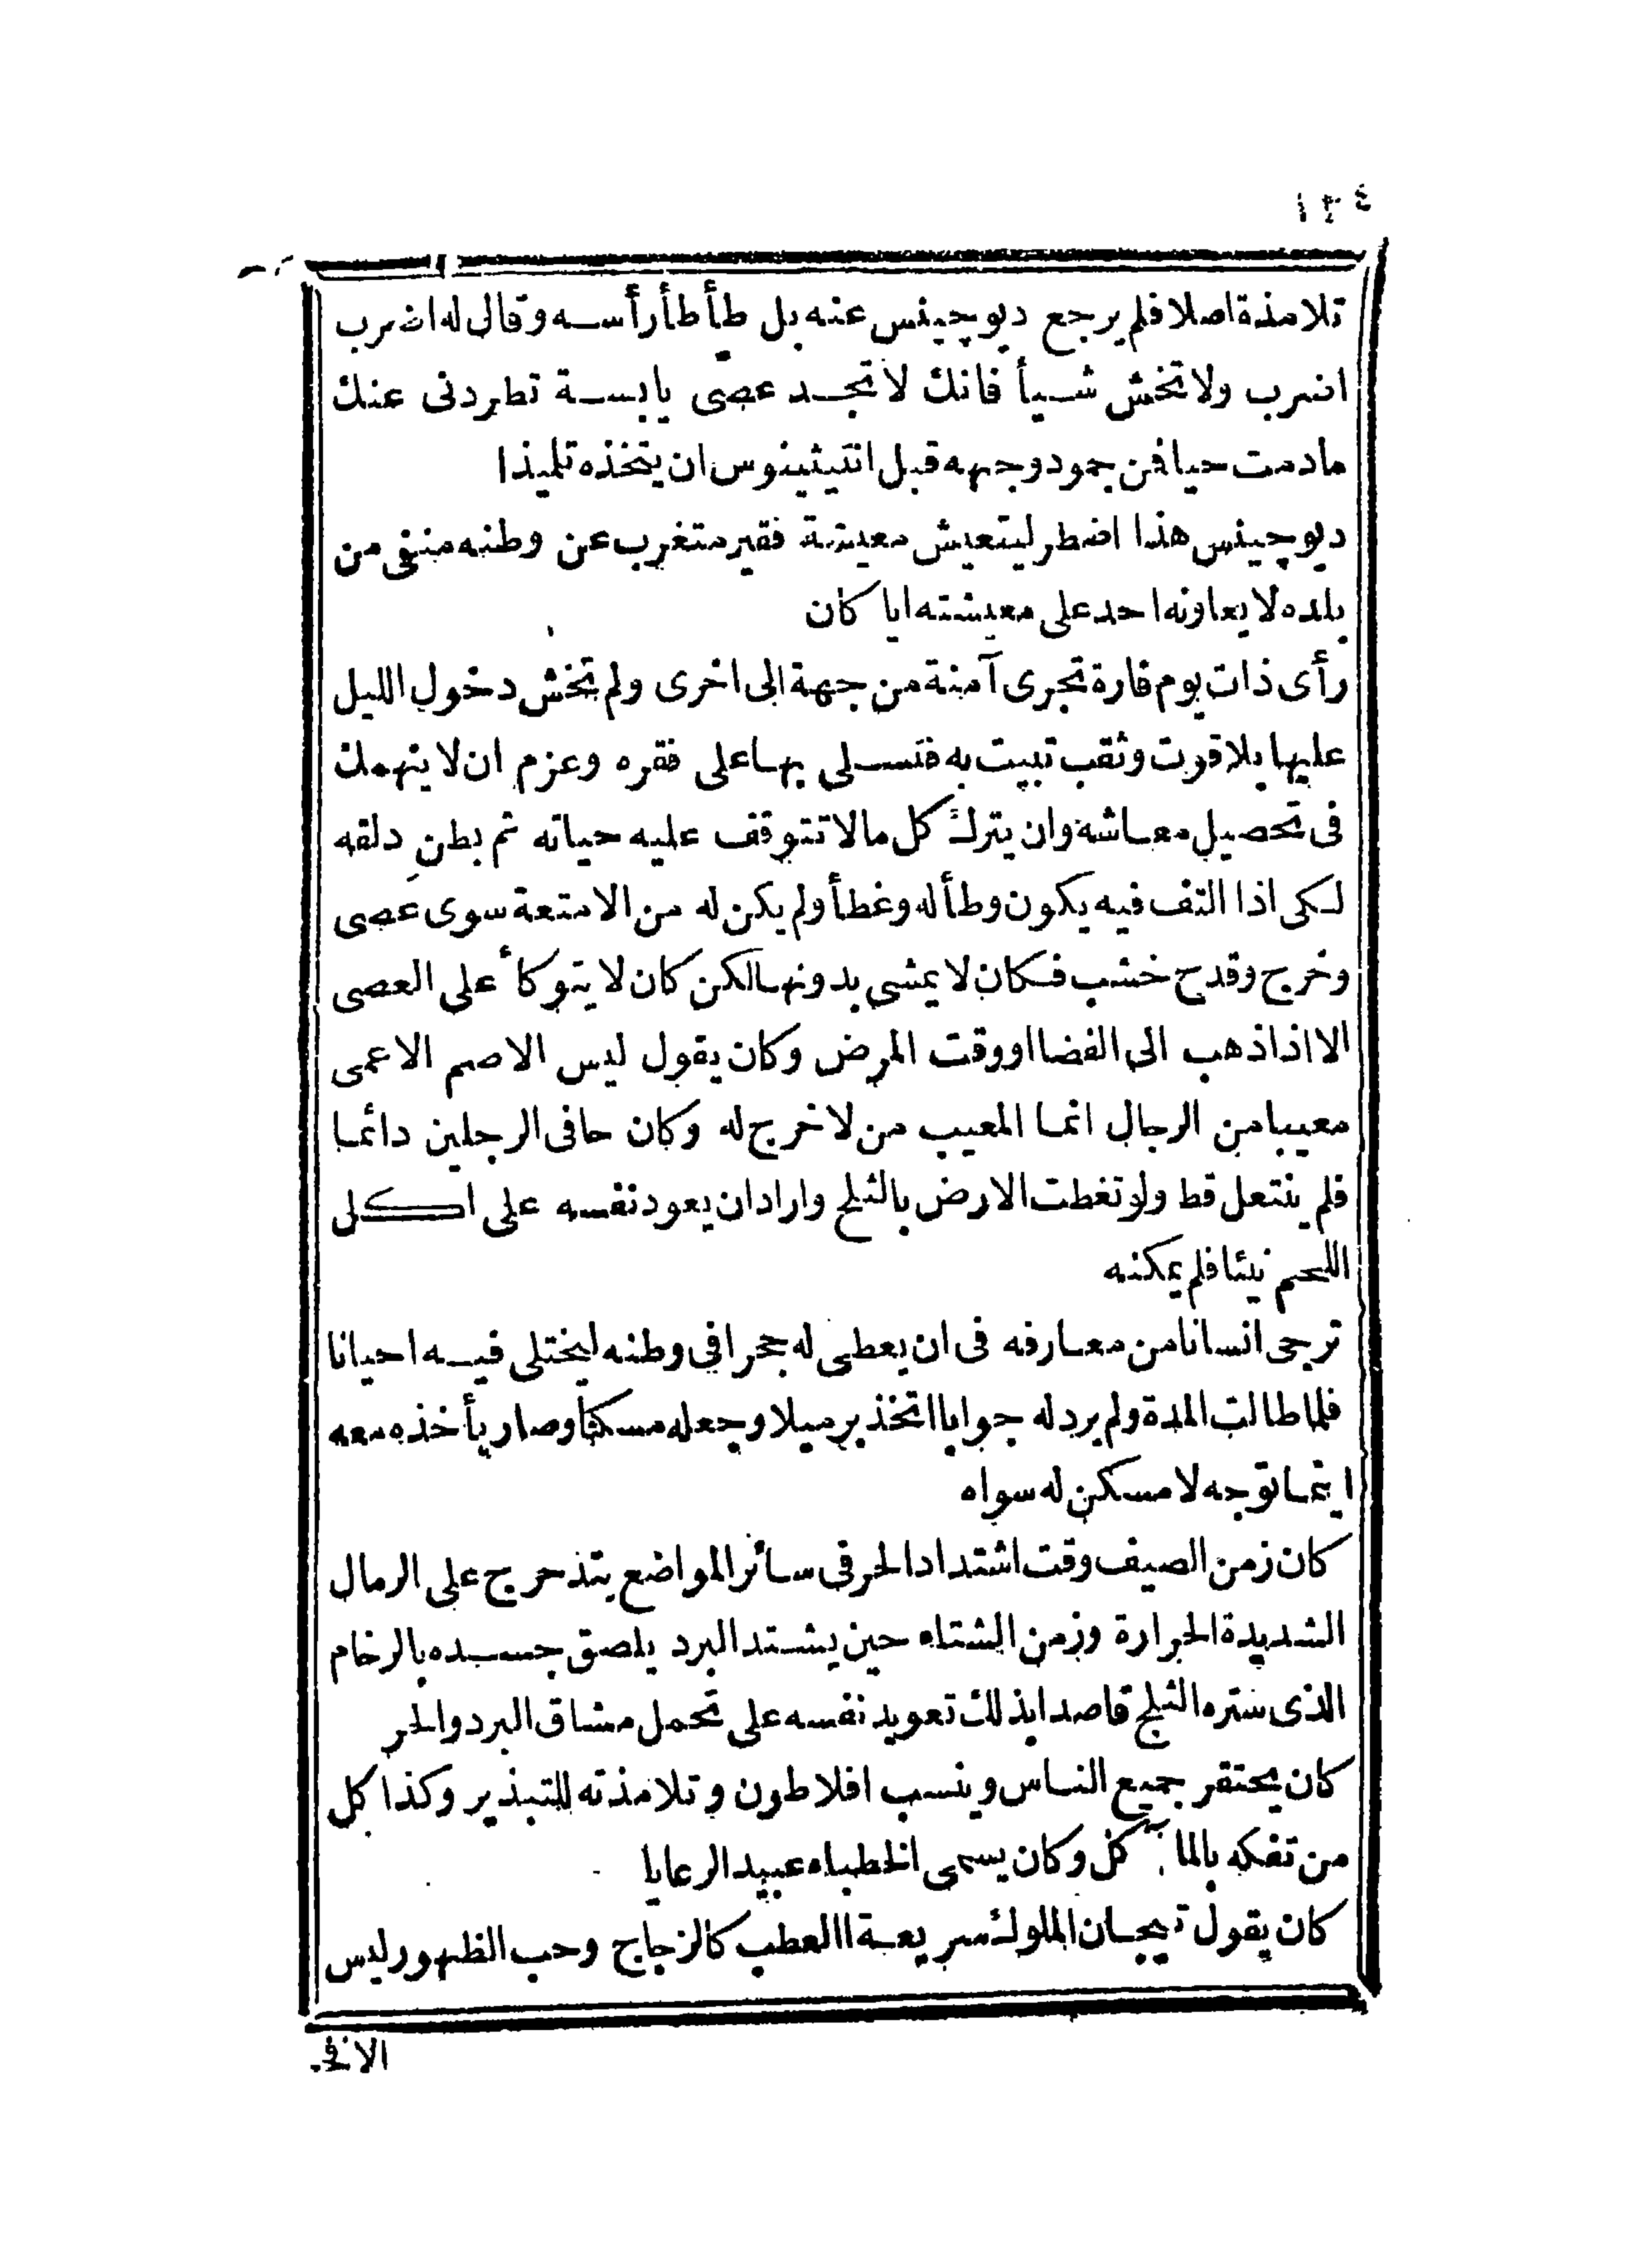 ١٣٤
تلامذة اصلا فلم يرجع ديوچينس عنه بل طأطأ رأسه وقال له اضرب
اضرب ولا تخش شيأ فانك لا تجد عصى يابسة تطردنى عنك
مادمت حيا فن جمود وجهه قبل انتيثينوس ان يتخذه تلميذا
ديوچينس هذا اضطر ليتعيش معيشة فقير متغرب عن وطنه منفى من
بلده لا يعاونه احد على معيشته ايا كان
رأى ذات يوم فارة تجرى آمنة من جهة الى اخرى ولم تخش دخول الليل
عليها بلا قوت وثقب تبيت به فتسلى بها على فقره وعزم ان لا ينهمك
فى تحصيل معاشه وان يترك كل مالا تتوقف عليه حياته ثم بطن دلقه
لكى اذا التف فيه يكون وطأ له وغطأ ولم يكن له من الامتعة سوى عصى
وخرج وقدح خشب فكان لا يمشى بدونها لكن كان لا يتوكأ على العصى
الا اذا ذهب الى الفضا او وقت المرض وكان يقول ليس الاصم الاعمى
معيبا من الرجال انما المعيب من لا خرج له وكان حافى الرجلين دائما
فلم ينتعل قط ولو تغطت الارض بالثلج واراد ان يعود نفسه على اكل
اللحم نيئا فلم يمكنه
ترجى انسانا من معارفه فى ان يعطى له جحرا فى وطنه ليختلى فيه احيانا
فلما طالت المدة ولم يرد له جوابا اتخذ برميلا وجعله مسكنا وصار يأخذه معه
اينما توجه لا مسكن له سواه
كان زمن الصيف وقت اشتداد الحر فى سائر المواضع يتدحرج على الرمال
الشديدة الحرارة وزمن الشتاء حين يشتد البرد يلصق جسده بالرخام
الذى ستره الثلج قاصدا بذلك تعويد نفسه على تحمل مشاق البرد والحر
كان يحتقر جميع الناس وينسب افلاطون وتلامذته للتبذير وكذا كل
من تفكه بالمآكل وكان يسمى الخطباء عبيد الرعايا
كان يقول تيجان الملوك سريعة العطب كالزجاج وحب الظهور ليس